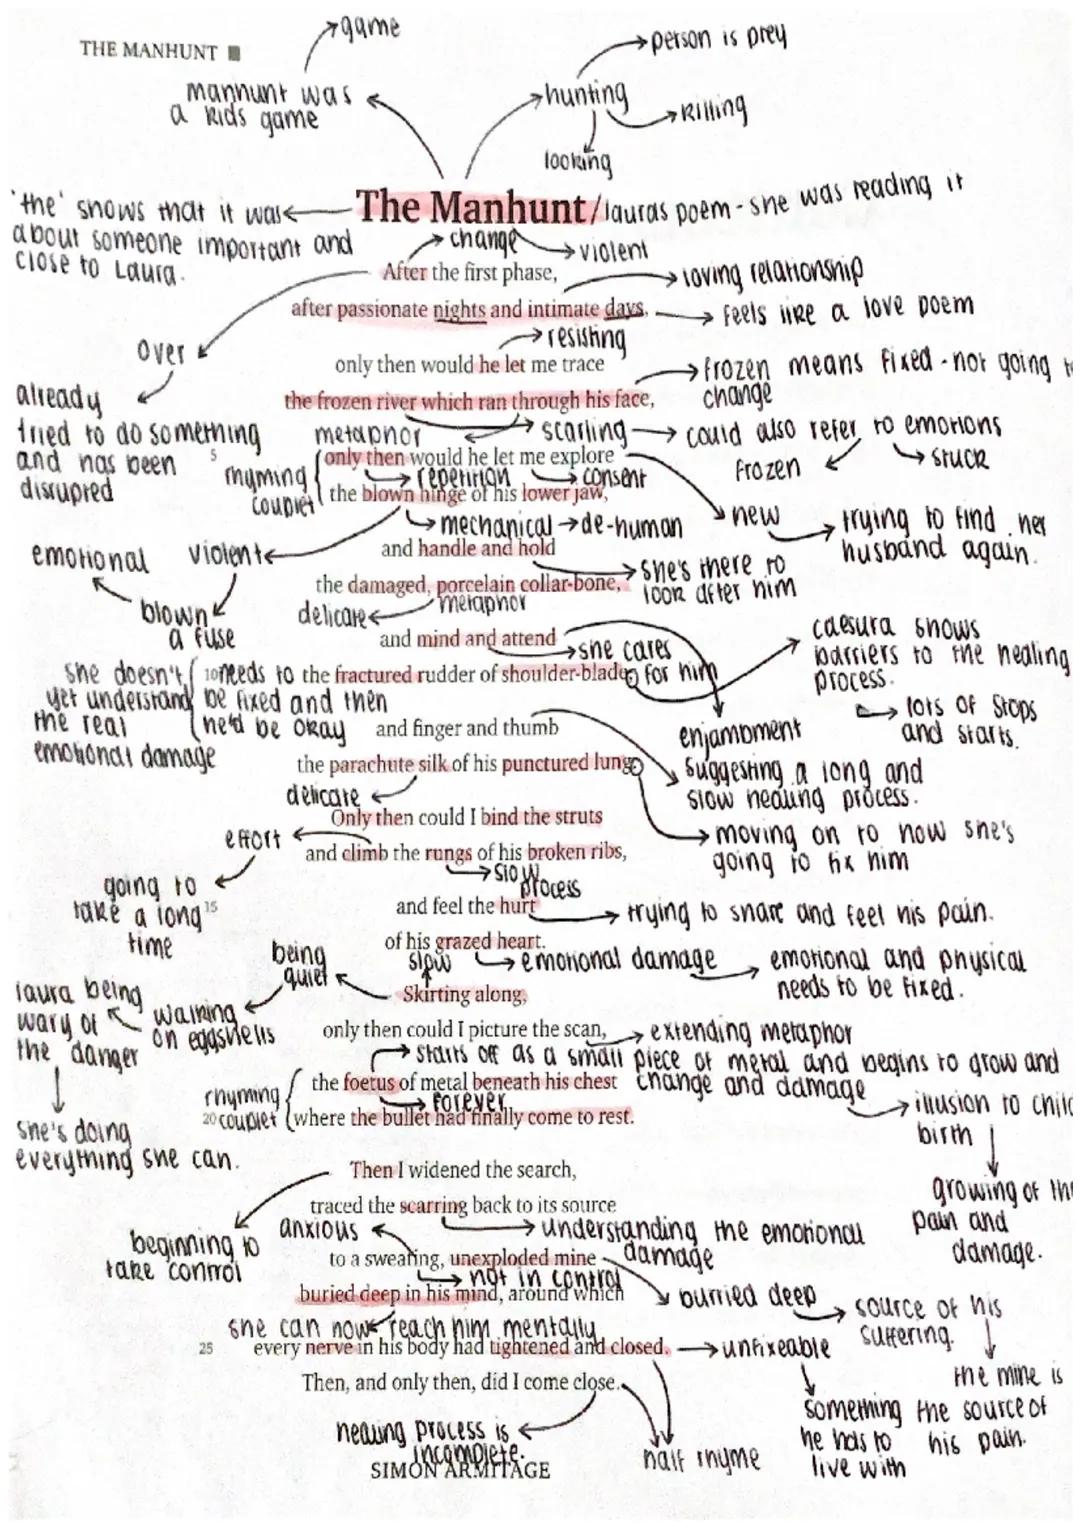 game
THE MANHUNT
person is prey
manhunt was
a kids game
hunting
killing
looking
'the' shows that it was
about someone important and
close to Laura.
The Manhunt / lauras poem - she was reading it
change
violent
After the first phase,
loving relationship
after passionate nights and intimate days,
feels like a love poem
over
resisting
only then would he let me trace
frozen means fixed - not going
change
already
tried to do something
and has been
disrupted
the frozen river which ran through his face,
metaphor
scarring
could also refer to emotions
frozen
stuck
5
rhyming
couplet
only then would he let me explore
repetition
consent
the blown hinge of his lower jaw,
mechanical
de-human
new
trying to find her
husband again.
emotional
violent
and handle and hold
she's there to
look after him
blown
a fuse
the damaged, porcelain collar-bone,
delicate
metaphor
and mind and attend
she cares
for him
caesura shows
barriers to the healing
process.
lots of stops
and starts.
she doesn't
yet understand
the real
emotional damage
10
needs to
be fixed and then
he'd be okay
the fractured rudder of shoulder-blade,
and finger and thumb
enjambment
suggesting a long and
slow healing process.
the parachute silk of his punctured lung.
delicate
Only then could I bind the struts
effort
moving on to now she's
going to fix him
and climb the rungs of his broken ribs,
slow
process
going to
take a long
time
15
and feel the hurt
trying to share and feel his pain.
of his grazed heart.
slow
emotional damage
emotional and physical
needs to be fixed.
being
quiet
Skirting along,
laura being
wary of
the danger
walking
on eggshells
only then could I picture the scan,
extending metaphor
starts off as a small piece of metal and begins to grow and
change and damage
the foetus of metal beneath his chest
rhyming
couplet
forever
20
where the bullet had finally come to rest.
illusion to child
birth
growing of the
pain and
damage.
she's doing
everything she can.
Then I widened the search,
traced the scarring back to its source
beginning to
take control
anxious
understanding the emotional
damage
to a sweating, unexploded mine
not in control
burried deep
source of his
suffering.
buried deep in his mind, around which
she can now reach him mentally
25
every nerve in his body had tightened and closed.
unfixeable
the mine is
the source of
his pain.
Then, and only then, did I come close.
something
he has to
live with
healing process is
incomplete.
half rhyme
SIMON ARMITAGE